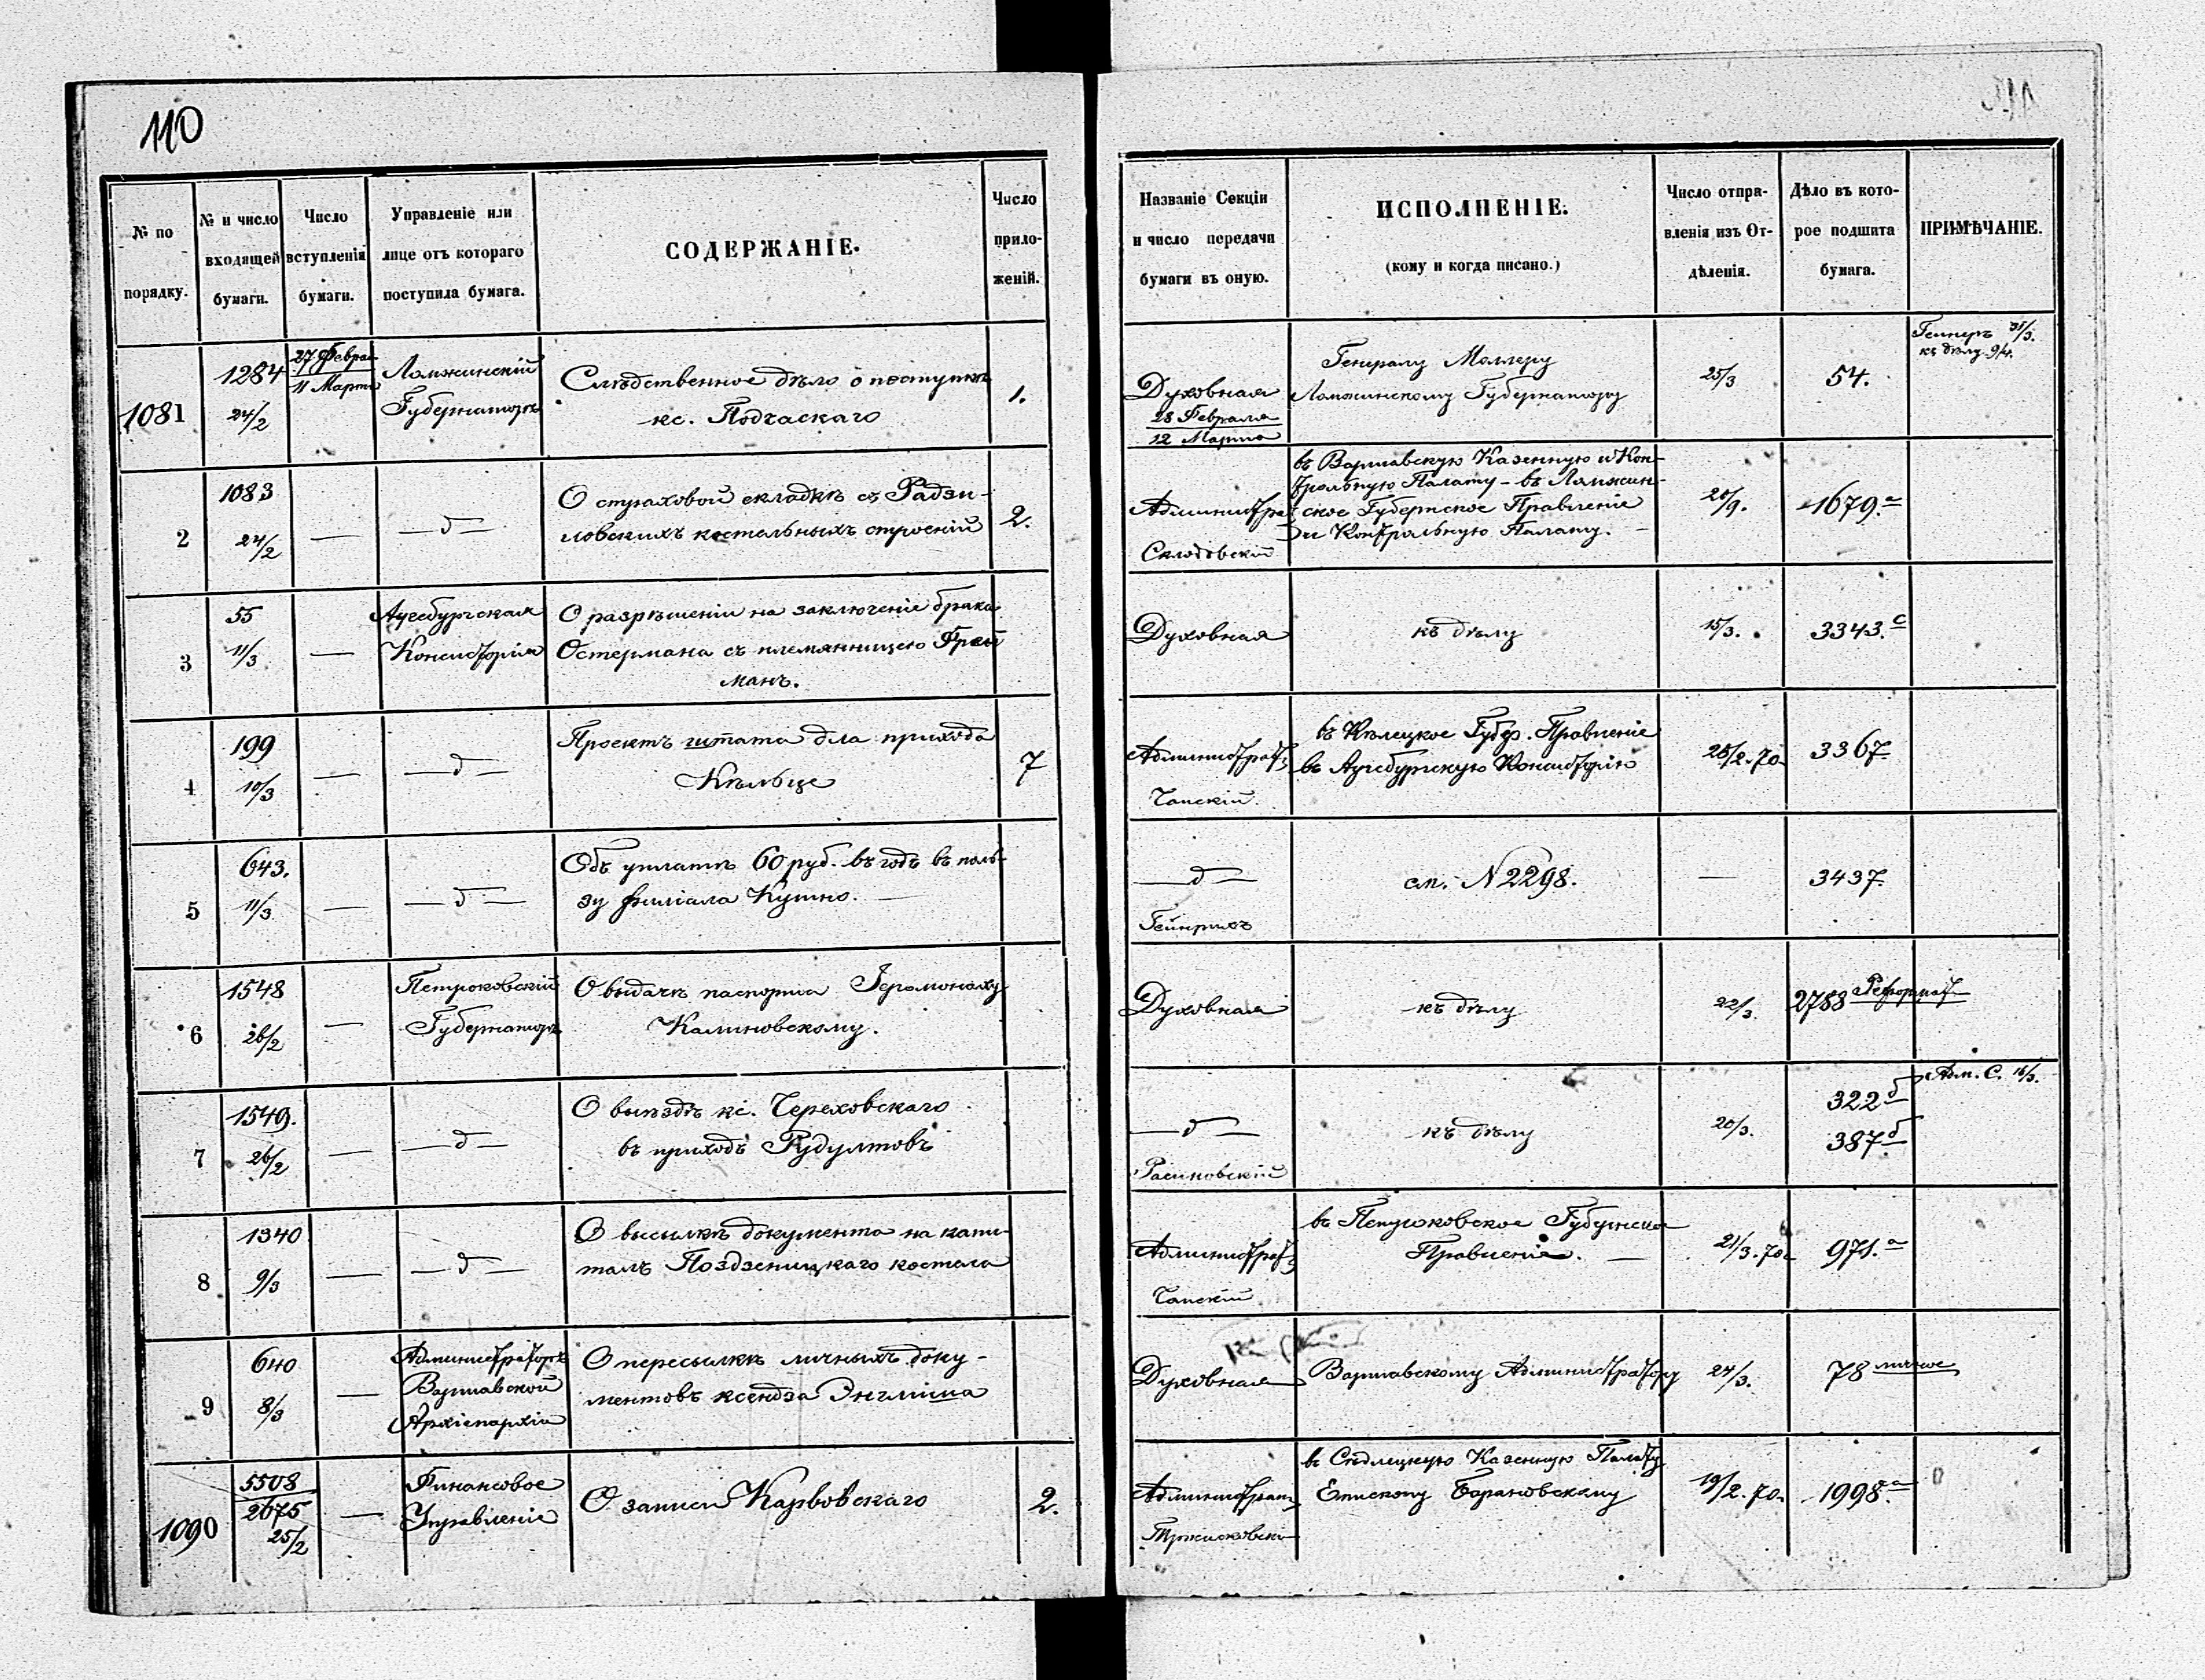 110
№ по порядку.
№ и число входящей бумаги.
Число вступленія бумаги.
Управленіе или лице отъ котораго поступила бумага.
СОДЕРЖАНІЕ.
Число приложеній.
Названіе Секціи и число передачи бумаги въ оную.
ИСПОЛНЕНІЕ.
(кому и когда писано.)
Число отправленія изъ Отдѣленія.
Дѣло въ которое подшита бумага.
ПРИМѢЧАНІЕ.
1081
1284
24/2
27 Феврал
11 Марта
Ломжинскій
Губернаторъ
Слѣдственное дѣло о поступкѣ
кс. Подчаскаго
1.
Духовная
28 Февраля
12 Марта
Генералу Моллеру
Ломжинскому Губернатору
25/3
54.
31/3.
къ дѣлу 9/4.
2
1083
24/2
—
—д—
О страховой складкѣ съ Радзи-
ловскихъ костельныхъ строеній
2.
Администра
Склодовскій
въ Варшавскую Казенную и Кон-
трольную Палату – въ Ломжин-
ское Губернское Правленіе
и Контрольную Палату. —
20/9.
1679.а
3
55
11/3
—
Аугсбургская
Консисторія
О разрѣшеніи на заключеніе брака
Остермана съ племянницею Фрей
манъ.
Духовная
къ дѣлу
15/3.
3343.с
4
199
10/3
—
—д—
Проектъ штата для прихода
Кѣльце
7
Администрат
Чапскій
въ Кѣлецкое Губер. Правленіе
въ Аугсбургскую Консисторію
3367.
5
643.
11/3
—
—д—
Объ уплатѣ 60 руб. въ годъ въ поль-
зу филіала Кутно. —
—д—
Гейнрихъ
см. N 2298.
—
3437.
6
1548
26/2
—
Петроковскій
Губернаторъ
О выдачѣ паспорта Іеромонаху
Калиновскому.
Духовная
къ дѣлу
22/3.
2788 Реформат
7
1549.
26/2
—
—д—
О выѣздѣ кс. Череховскаго
въ приходъ Рудултовъ
—д—
Расиновскій
къ дѣлу
20/3.
322 б
387 б
Адм. С. 16/3.
8
1340
9/3
—
—д—
О высылкѣ документа на капи-
талъ Поздзеницкаго костела
Администрат
Чапскій
въ Петроковское Губернское
Правленіе. —
21/3.70
971.а
9
640
8/3
—
Администраторъ
Варшавской
Архіепархіи
О пересылкѣ личныхъ доку-
ментовъ ксендза Энглиша
Духовная
Варшавскому Администратору
24/3.
78 личное
1090
5508
2675
25/2
—
Финансовое
Управленіе
О записи Карвовскаго
2.
Администрат
въ Сѣдлецкую Казенную Палату
Епископу Барановскому
19/2.70
1998.а